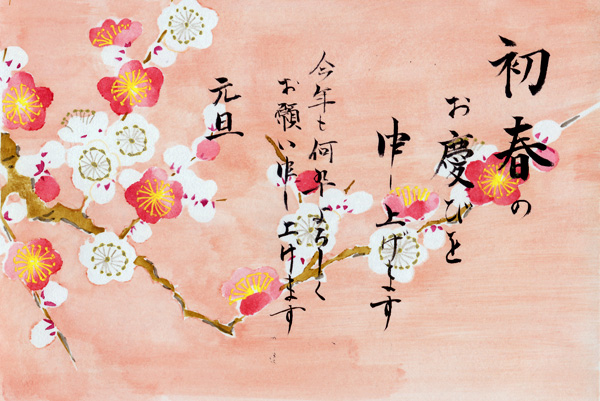 初春の
お慶びを
申し上げます
今年も何卒よろしく
お願い申し上げます
元旦